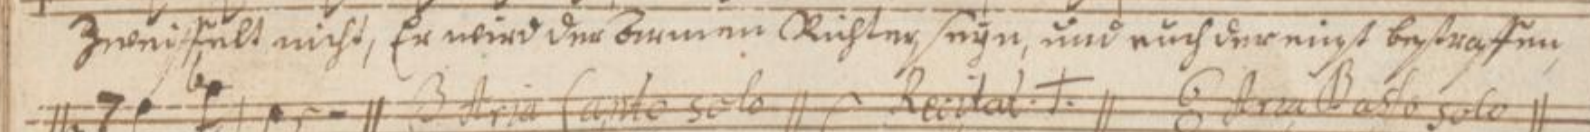 Zweiffelt nicht, Er wird der armen Richter seyn, und euch dereinst bestraffen,
B Aria Canto solo || C Recitat. T. || 6 Aria Basso solo ||